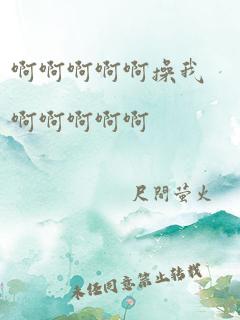 啊啊啊啊啊操我
啊啊啊啊啊
尺間萤火
未经同意禁止转载